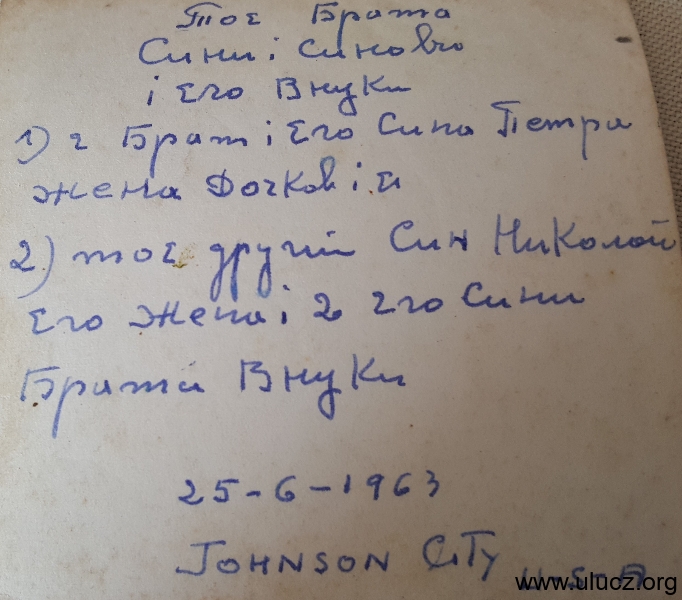 Тоє Брата
Сини і Синово
і Его Внуки
1) є Брат і Его Сина Петра
жена Дочков і
2) тоє другий Син Николой
Его Жена і 2 Его Сини
Брата Внуки
25-6-1963
JOHNSON CITY U-S-A
www.ulucz.org